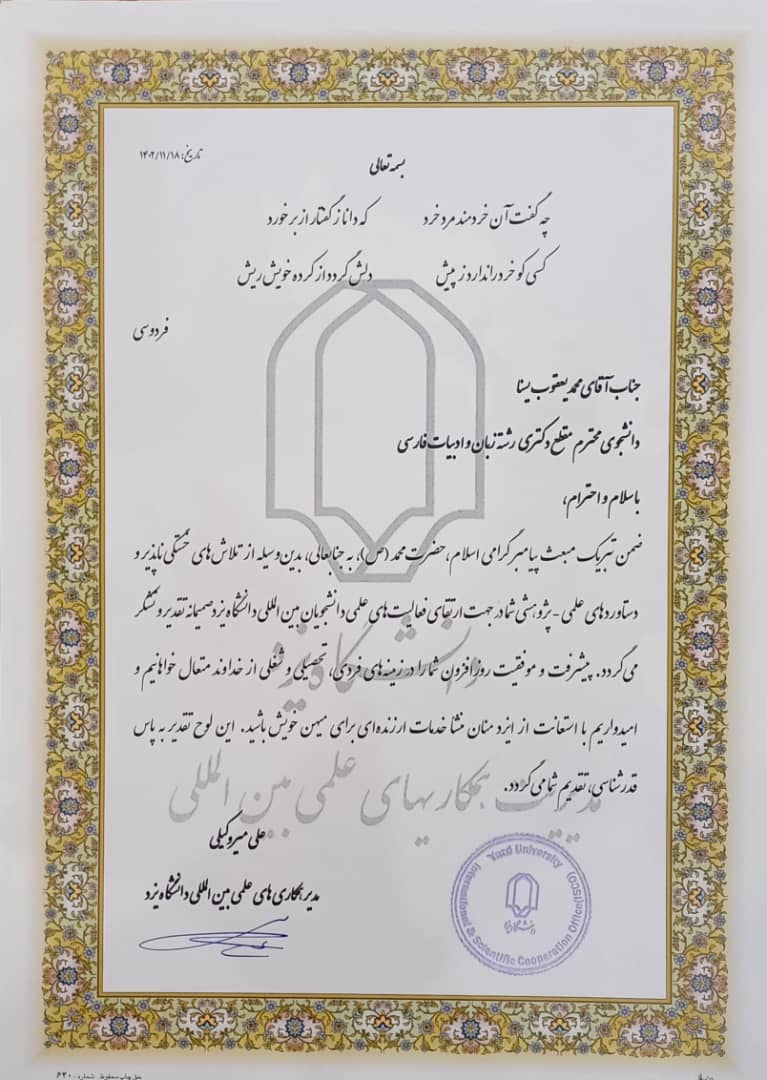 تاریخ: ۱۴۰۲/۱۱/۱۸
بسمه تعالی
چه گفت آن خردمند مرد خرد که دانا ز گفتار از برخورد
کسی کو خرد را ندارد ز پیش دلش گردد از کرده خویش ریش
فردوسی
جناب آقای محمد یعقوب یسنا
دانشجوی محترم مقطع دکتری رشته زبان و ادبیات فارسی
با سلام و احترام،
ضمن تبریک مبعث پیامبر گرامی اسلام، حضرت محمد (ص)، به جنابعالی، بدین وسیله از تلاش های خستگی ناپذیر و
دستاوردهای علمی - پژوهشی شما در جهت ارتقای فعالیت های علمی دانشجویان بین المللی دانشگاه یزد صمیمانه تقدیر و تشکر
می گردد. پیشرفت و موفقیت روز افزون شما را در زمینه های فردی، تحصیلی و شغلی از خداوند متعال خواهانیم و
امیدواریم با استعانت از ایزد منان منشا خدمات ارزنده ای برای میهن خویش باشید. این لوح تقدیر به پاس
قدرشناسی، تقدیم شما می گردد.
دانشگاه یزد
مدیریت همکاریهای علمی بین المللی
علی میروکیلی
مدیر همکاری های علمی بین المللی دانشگاه یزد
Yazd University
International & Scientific Cooperation Office(ISCO)
دانشگاه یزد
حق چاپ محفوظ شماره ۶۴۰۰